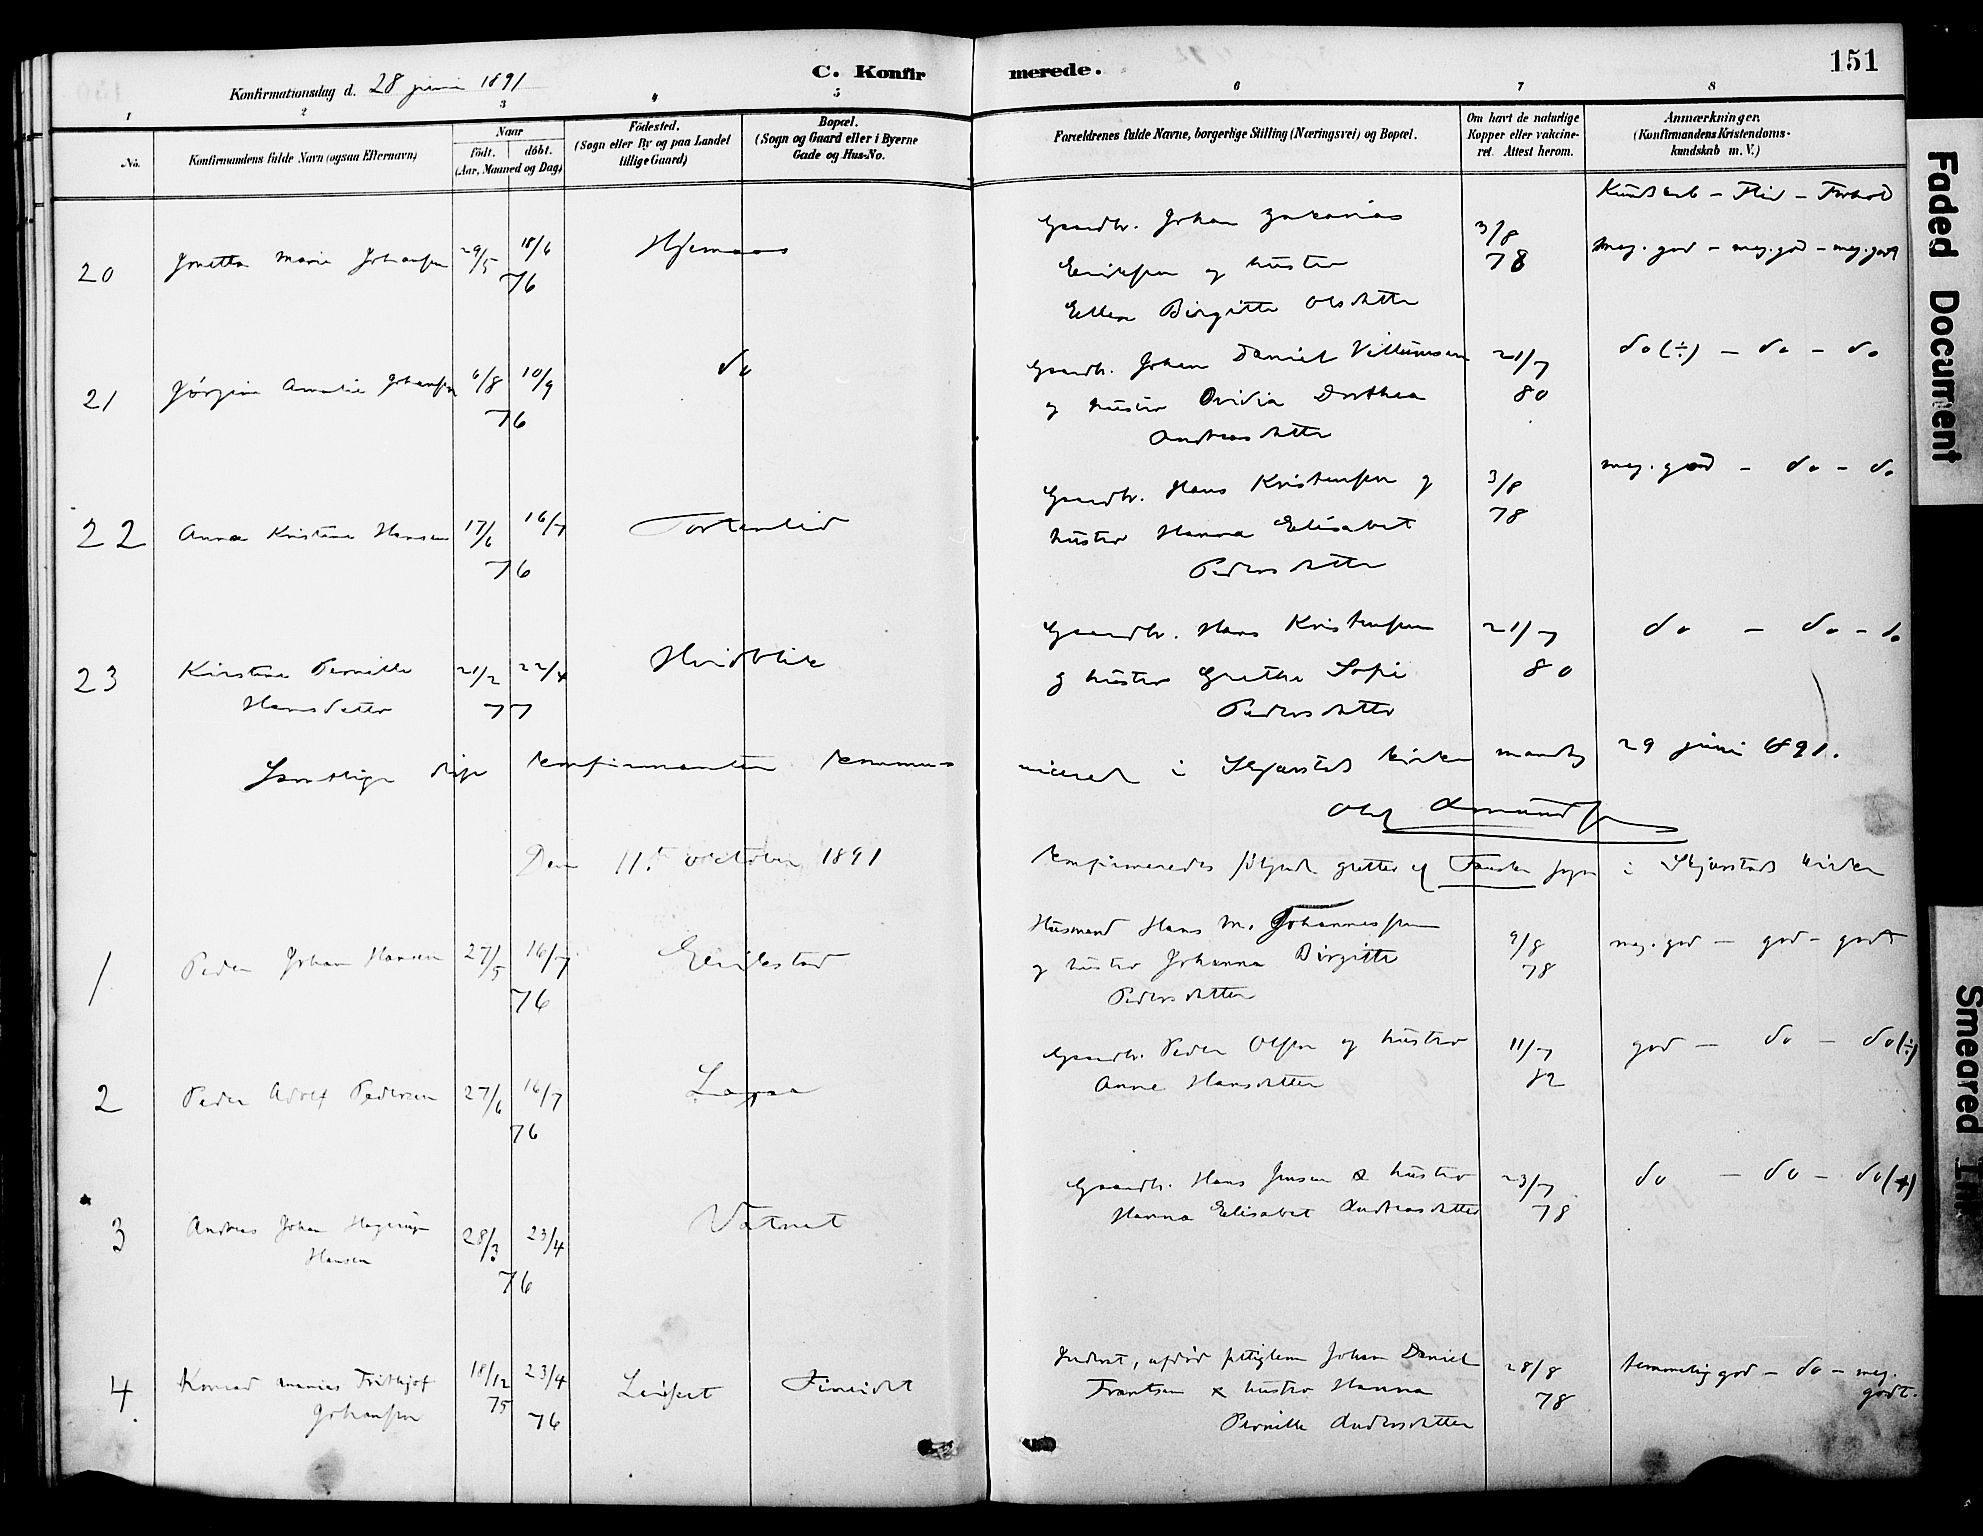 151
C. Konfirmerede.
Konfirmationsdag d. 28 juni 1891
1 2 3 4 5 6 7 8
No.
Konfirmandens fulde Navn (ogsaa Efternavn)
Naar
födt. döbt.
(Aar, Maaned og Dag)
Födested.
(Sogn eller By og paa Landet
tillige Gaard)
Bopæl.
(Sogn og Gaard eller i Byerne
Gade og Hus-No.
Forældrenes fulde Navne, borgerlige Stilling (Næringsvei) og Bopæl.
Om havt de naturlige
Kopper eller vakcine-
ret. Attest herom.
Anmærkninger.
(Konfirmandens Kristendoms-
kundskab m. V.)
Kundskab – Flid – Forhold
20 Jonetta Marie Johansen 29/5 18/6 76 Gaardbr. Johan Zakarias 3/8 78 meg. god – meg. god – meg. godt
Eriksen og hustru
Ellen Birgitte Olsdatter
21 Jørgine Amalie Johansen 6/8 10/9 76 do Gaardbr. Johan Daniel Villumsen 21/7 80 do (÷) – do – do
og hustru Ovidia Dorthea
Andreasdatter
22 Anna Kristine Hansen 17/6 16/7 76 Gaardbr. Hans Kristensen og 3/8 78 meg. god – do – do
hustru Hanna Elisabet
Pedersdatter
23 Kirstine Pernille 21/2 22/4 77 Hvidblik Gaardbr. Hans Kristensen 21/7 80 do – do – do
Hansdatter og hustru Grethe Sofie
Pedersdatter
Samtlige disse konfirmanter kommunicerede i Skjærstad kirke mandag 29 juni 1891.
Olaf Amundsen
Den 11. october 1891 konfirmeredes følgende gutter af Fauske sogn i Skjærstads kirke
1 Peder Johan Hansen 27/5 16/7 76 Erikstad Husmand Hans M. Johannessen 9/8 78 meg. god – god – godt
og hustru Johanna Birgitte
Pedersdatter
2 Peder Adolf Pedersen 27/6 16/7 76 Gaardbr. Peder Olsen og hustru 11/7 82 god – do – do (÷)
Anne Hansdatter
3 Andreas Johan 28/3 23/4 76 Vatnet Gaardbr. Hans Jensen & hustru 23/7 78 do – do – do (+)
Hansen Hanna Elisabet Andreasdatter
4 Konrad Ananias Frithjof 18/12 75 23/4 76 Leifset Fineidet Inderst, Johan Daniel 28/8 78 temmelig god – do – meg.
Johansen Frantsen & hustru Hanna godt.
Pernille Andersdatter
Faded Document
Smeared Ink